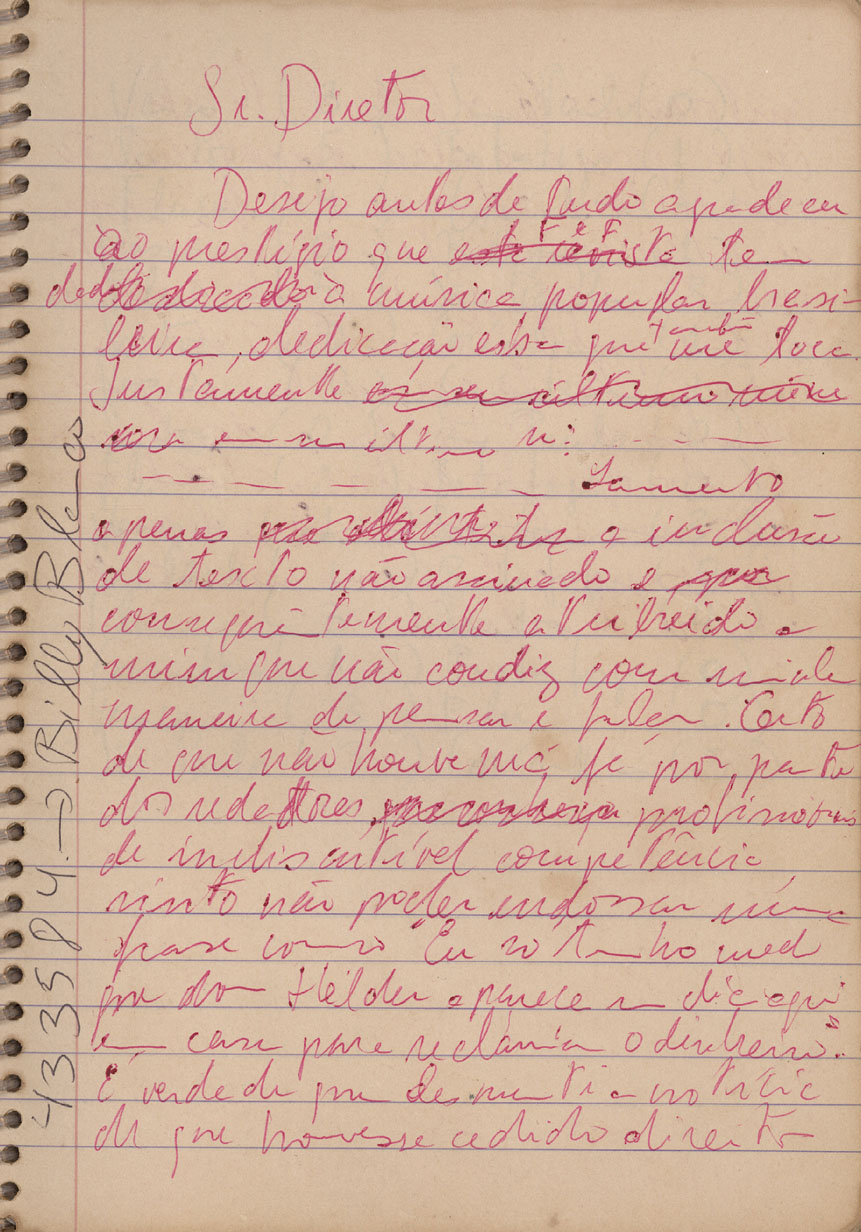 Sr. Diretor
Desejo antes de tudo agradecer
ao prestígio que este revista F e F tem
dado dedicado à música popular brasi-
leira, dedicação essa que também me toca.
Justamente em seu último núme
em seu último nº:
Lamento
apenas a inclusão
de texto não assinado e que
conseqüentemente atribuido a
mim que não condiz com minha
maneira de pensar e falar. Certo
de que não houve má fé por parte
dos redatores, profissionais
de indiscutível competência,
sinto não poder endossar uma
frase como "Eu só tenho medo
que dom Helder apareça um dia aqui
em casa para reclamar o dinheiro".
É verdade que desmenti a notícia
de que houvesse cedido direitos
433584. → Billy Blanco